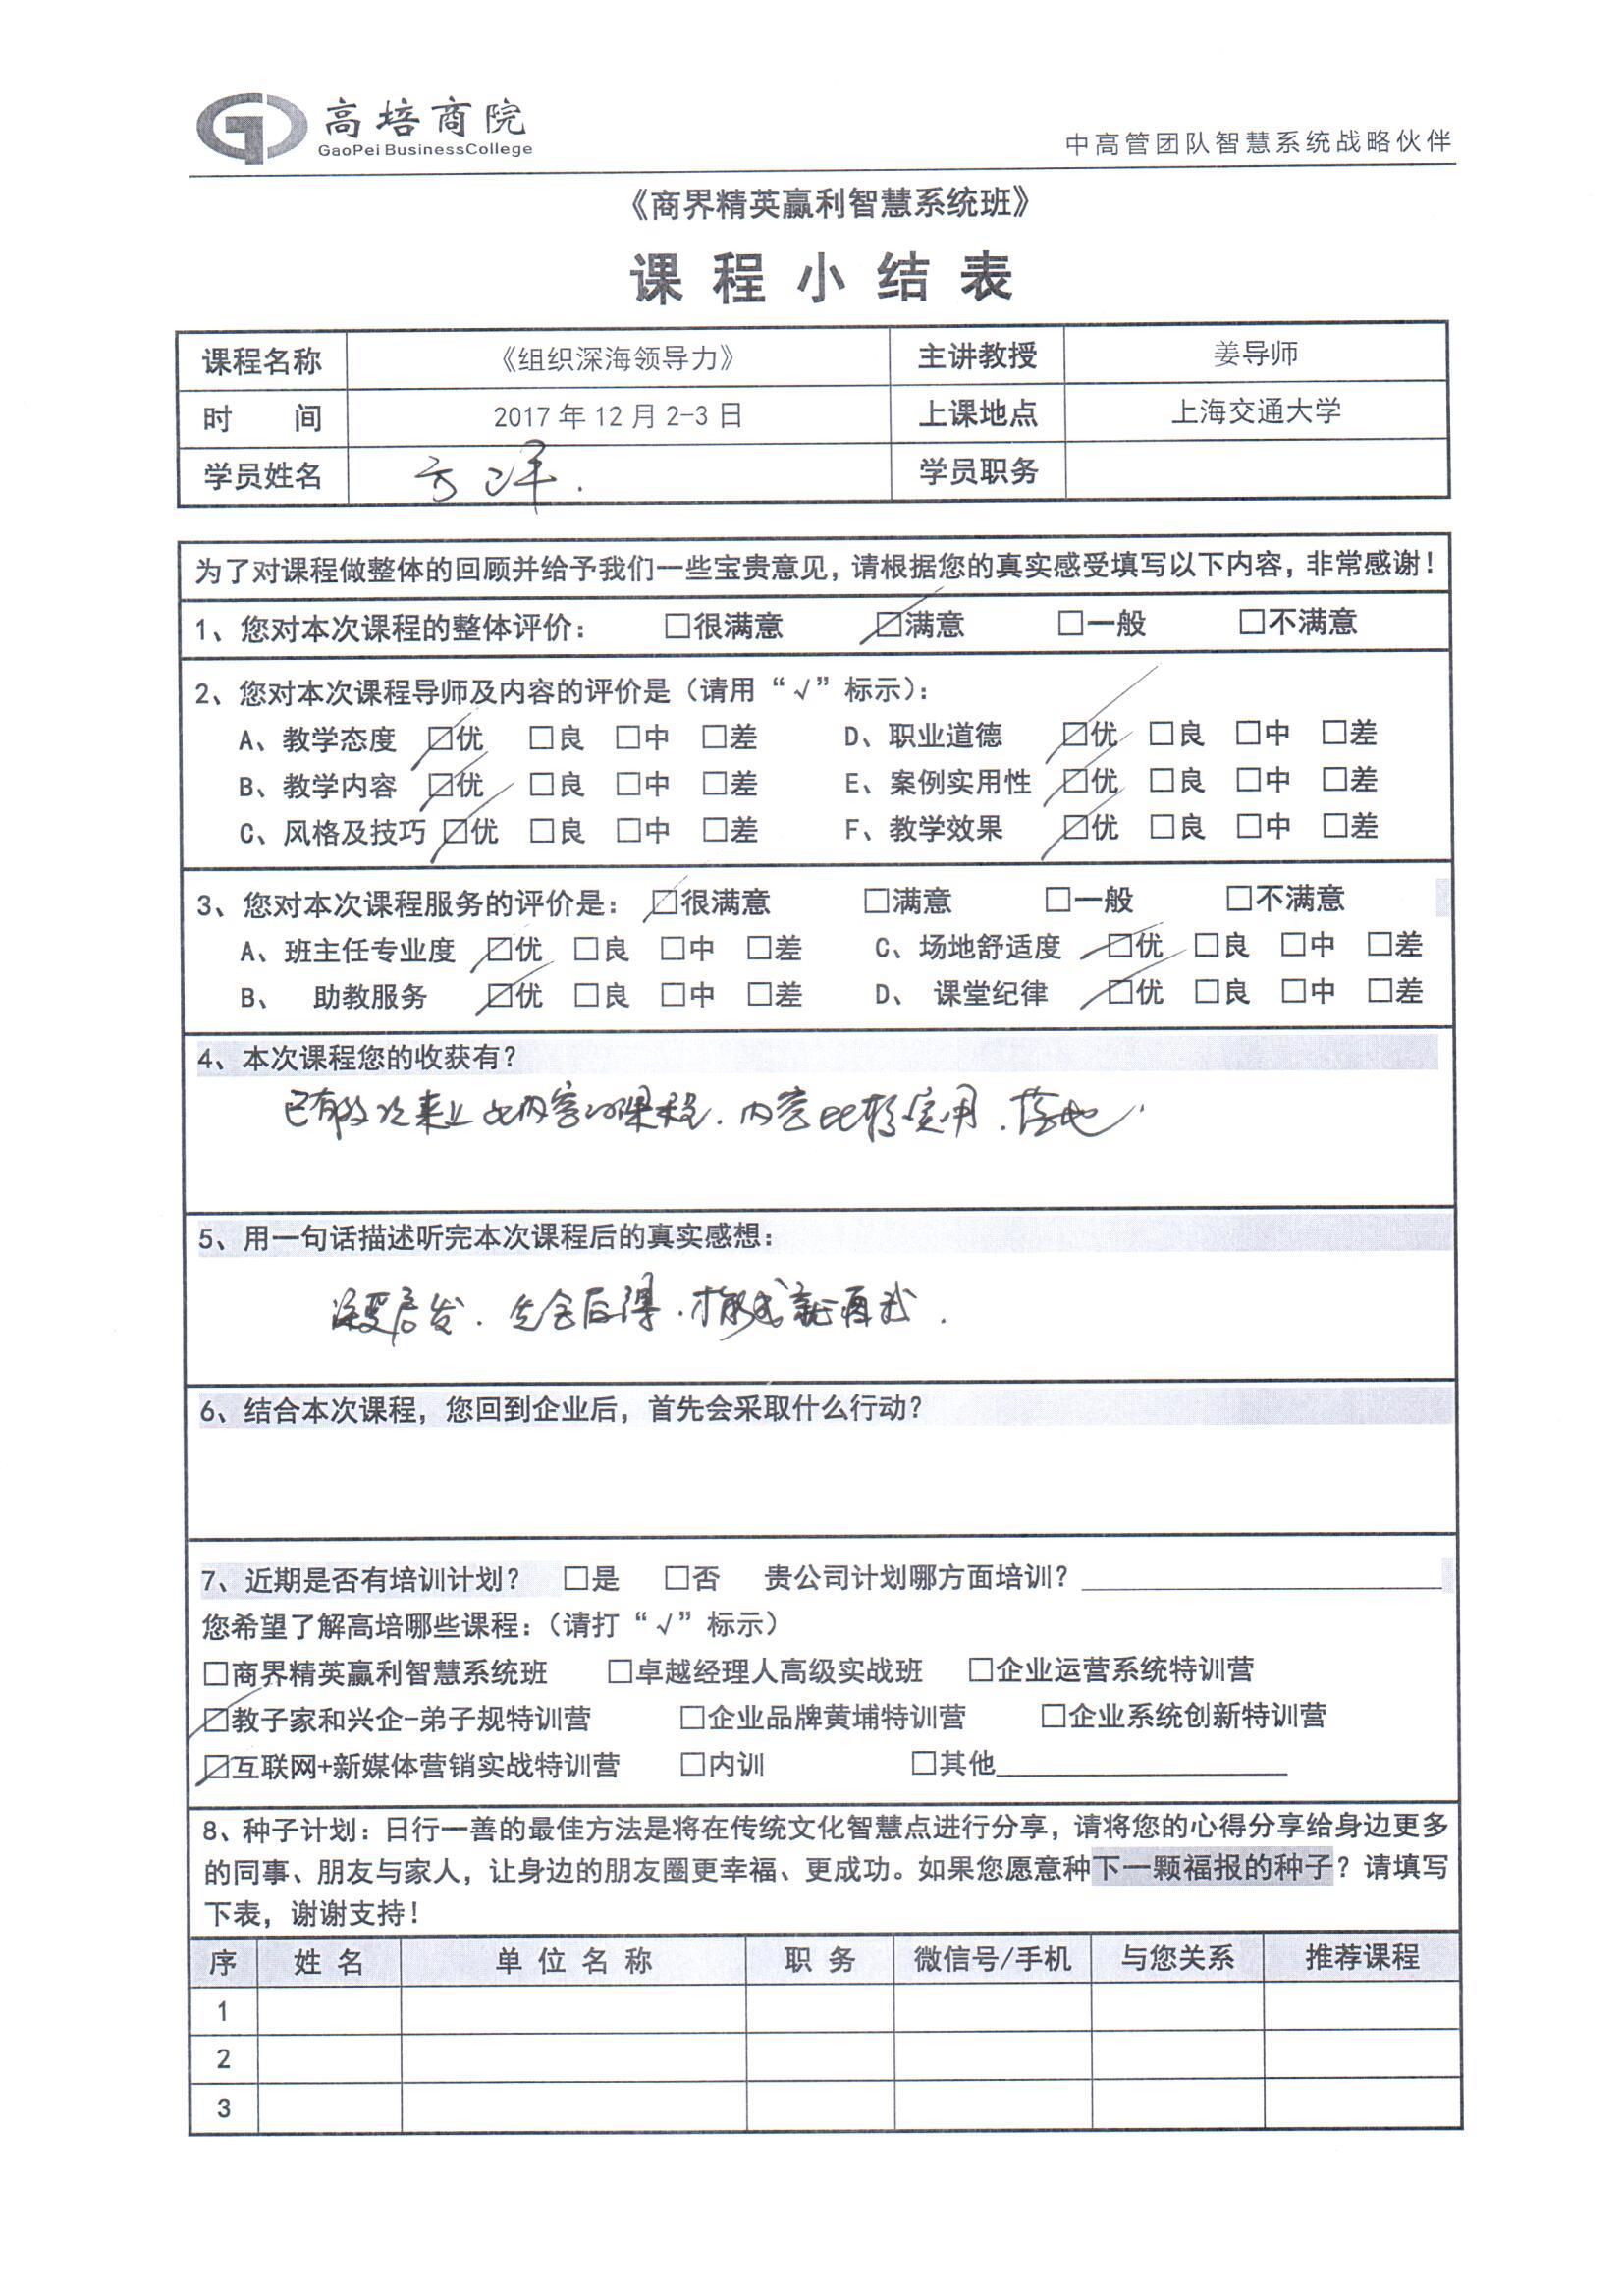 高培商院
GaoPei BusinessCollege
中高管团队智慧系统战略伙伴
《商界精英赢利智慧系统班》
课 程 小 结 表
课程名称 《组织深海领导力》 主讲教授 姜导师
时 间 2017 年 12 月 2-3 日 上课地点 上海交通大学
学员姓名 方洋. 学员职务
为了对课程做整体的回顾并给予我们一些宝贵意见，请根据您的真实感受填写以下内容，非常感谢！
1、您对本次课程的整体评价： □很满意 ☑满意 □一般 □不满意
2、您对本次课程导师及内容的评价是（请用“√”标示）：
A、教学态度 ☑优 □良 □中 □差 D、职业道德 ☑优 □良 □中 □差
B、教学内容 ☑优 □良 □中 □差 E、案例实用性 ☑优 □良 □中 □差
C、风格及技巧 ☑优 □良 □中 □差 F、教学效果 ☑优 □良 □中 □差
3、您对本次课程服务的评价是： ☑很满意 □满意 □一般 □不满意
A、班主任专业度 ☑优 □良 □中 □差 C、场地舒适度 ☑优 □良 □中 □差
B、 助教服务 ☑优 □良 □中 □差 D、 课堂纪律 ☑优 □良 □中 □差
4、本次课程您的收获有？
已有数次来上此内容的课程.内容比较实用.落地.
5、用一句话描述听完本次课程后的真实感想：
深受启发.先舍后得.才成就
6、结合本次课程，您回到企业后，首先会采取什么行动？
7、近期是否有培训计划？ □是 □否 贵公司计划哪方面培训？
您希望了解高培哪些课程：（请打“√”标示）
□商界精英赢利智慧系统班 □卓越经理人高级实战班 □企业运营系统特训营
☑教子家和兴企-弟子规特训营 □企业品牌黄埔特训营 □企业系统创新特训营
☑互联网+新媒体营销实战特训营 □内训 □其他
8、种子计划：日行一善的最佳方法是将在传统文化智慧点进行分享，请将您的心得分享给身边更多
的同事、朋友与家人，让身边的朋友圈更幸福、更成功。如果您愿意种下一颗福报的种子？请填写
下表，谢谢支持！
序 姓 名 单 位 名 称 职 务 微信号/手机 与您关系 推荐课程
1
2
3